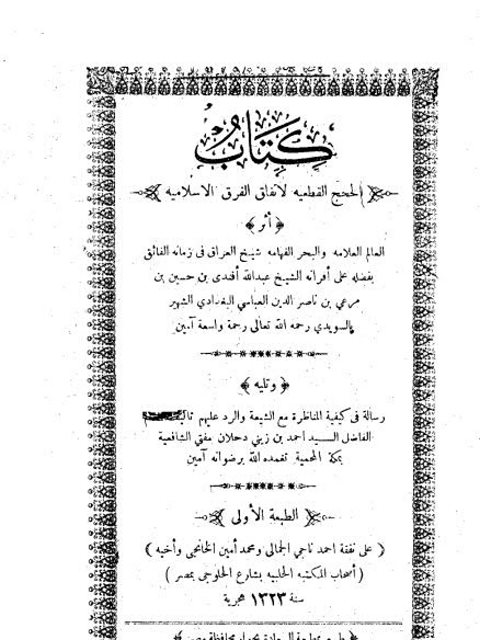 كِتَابُ
الحجج القطعيه لاتفاق الفرق الاسلاميه
﴿ أثر ﴾
العالم العلامه والبحر الفهامه شيخ العراق فى زمانه الفائق
بفضله على أقرانه الشيخ عبدالله أفندى بن حسين بن
مرعي بن ناصر الدين العباسي البغدادي الشهير
بالسويدي رحمه الله تعالى رحمة واسعة آمين
﴿ وتليه ﴾
رسالة فى كيفية المناظرة مع الشيعة والرد عليهم
الفاضل السيد احمد بن زيني دحلان مفتى الشافعية
بمكة المحمية تغمده الله برضوانه آمين
الطبعة الأولى
( على نفقة احمد ناجي الجمالى ومحمد أمين الخانجى وأخيه )
( أصحاب المكتبه الحلبيه بشارع الحلوجى بمصر )
سنة ١٣٢٣ هجرية
بجوار محافظة مصر